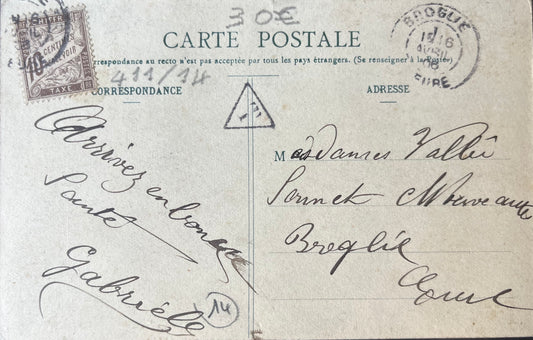 30€
CARTE POSTALE
La correspondance au recto n'est pas acceptée par tous les pays étrangers. (Se renseigner à la Poste)
411/14
CORRESPONDANCE
ADRESSE
10 CENTIMES
TAXE
BROGLIE
15 16
AVRIL
06
EURE
T
Arrivez en bonne
Santé
Gabrièle
14
Mesdames Vallée
Broglie
Eure